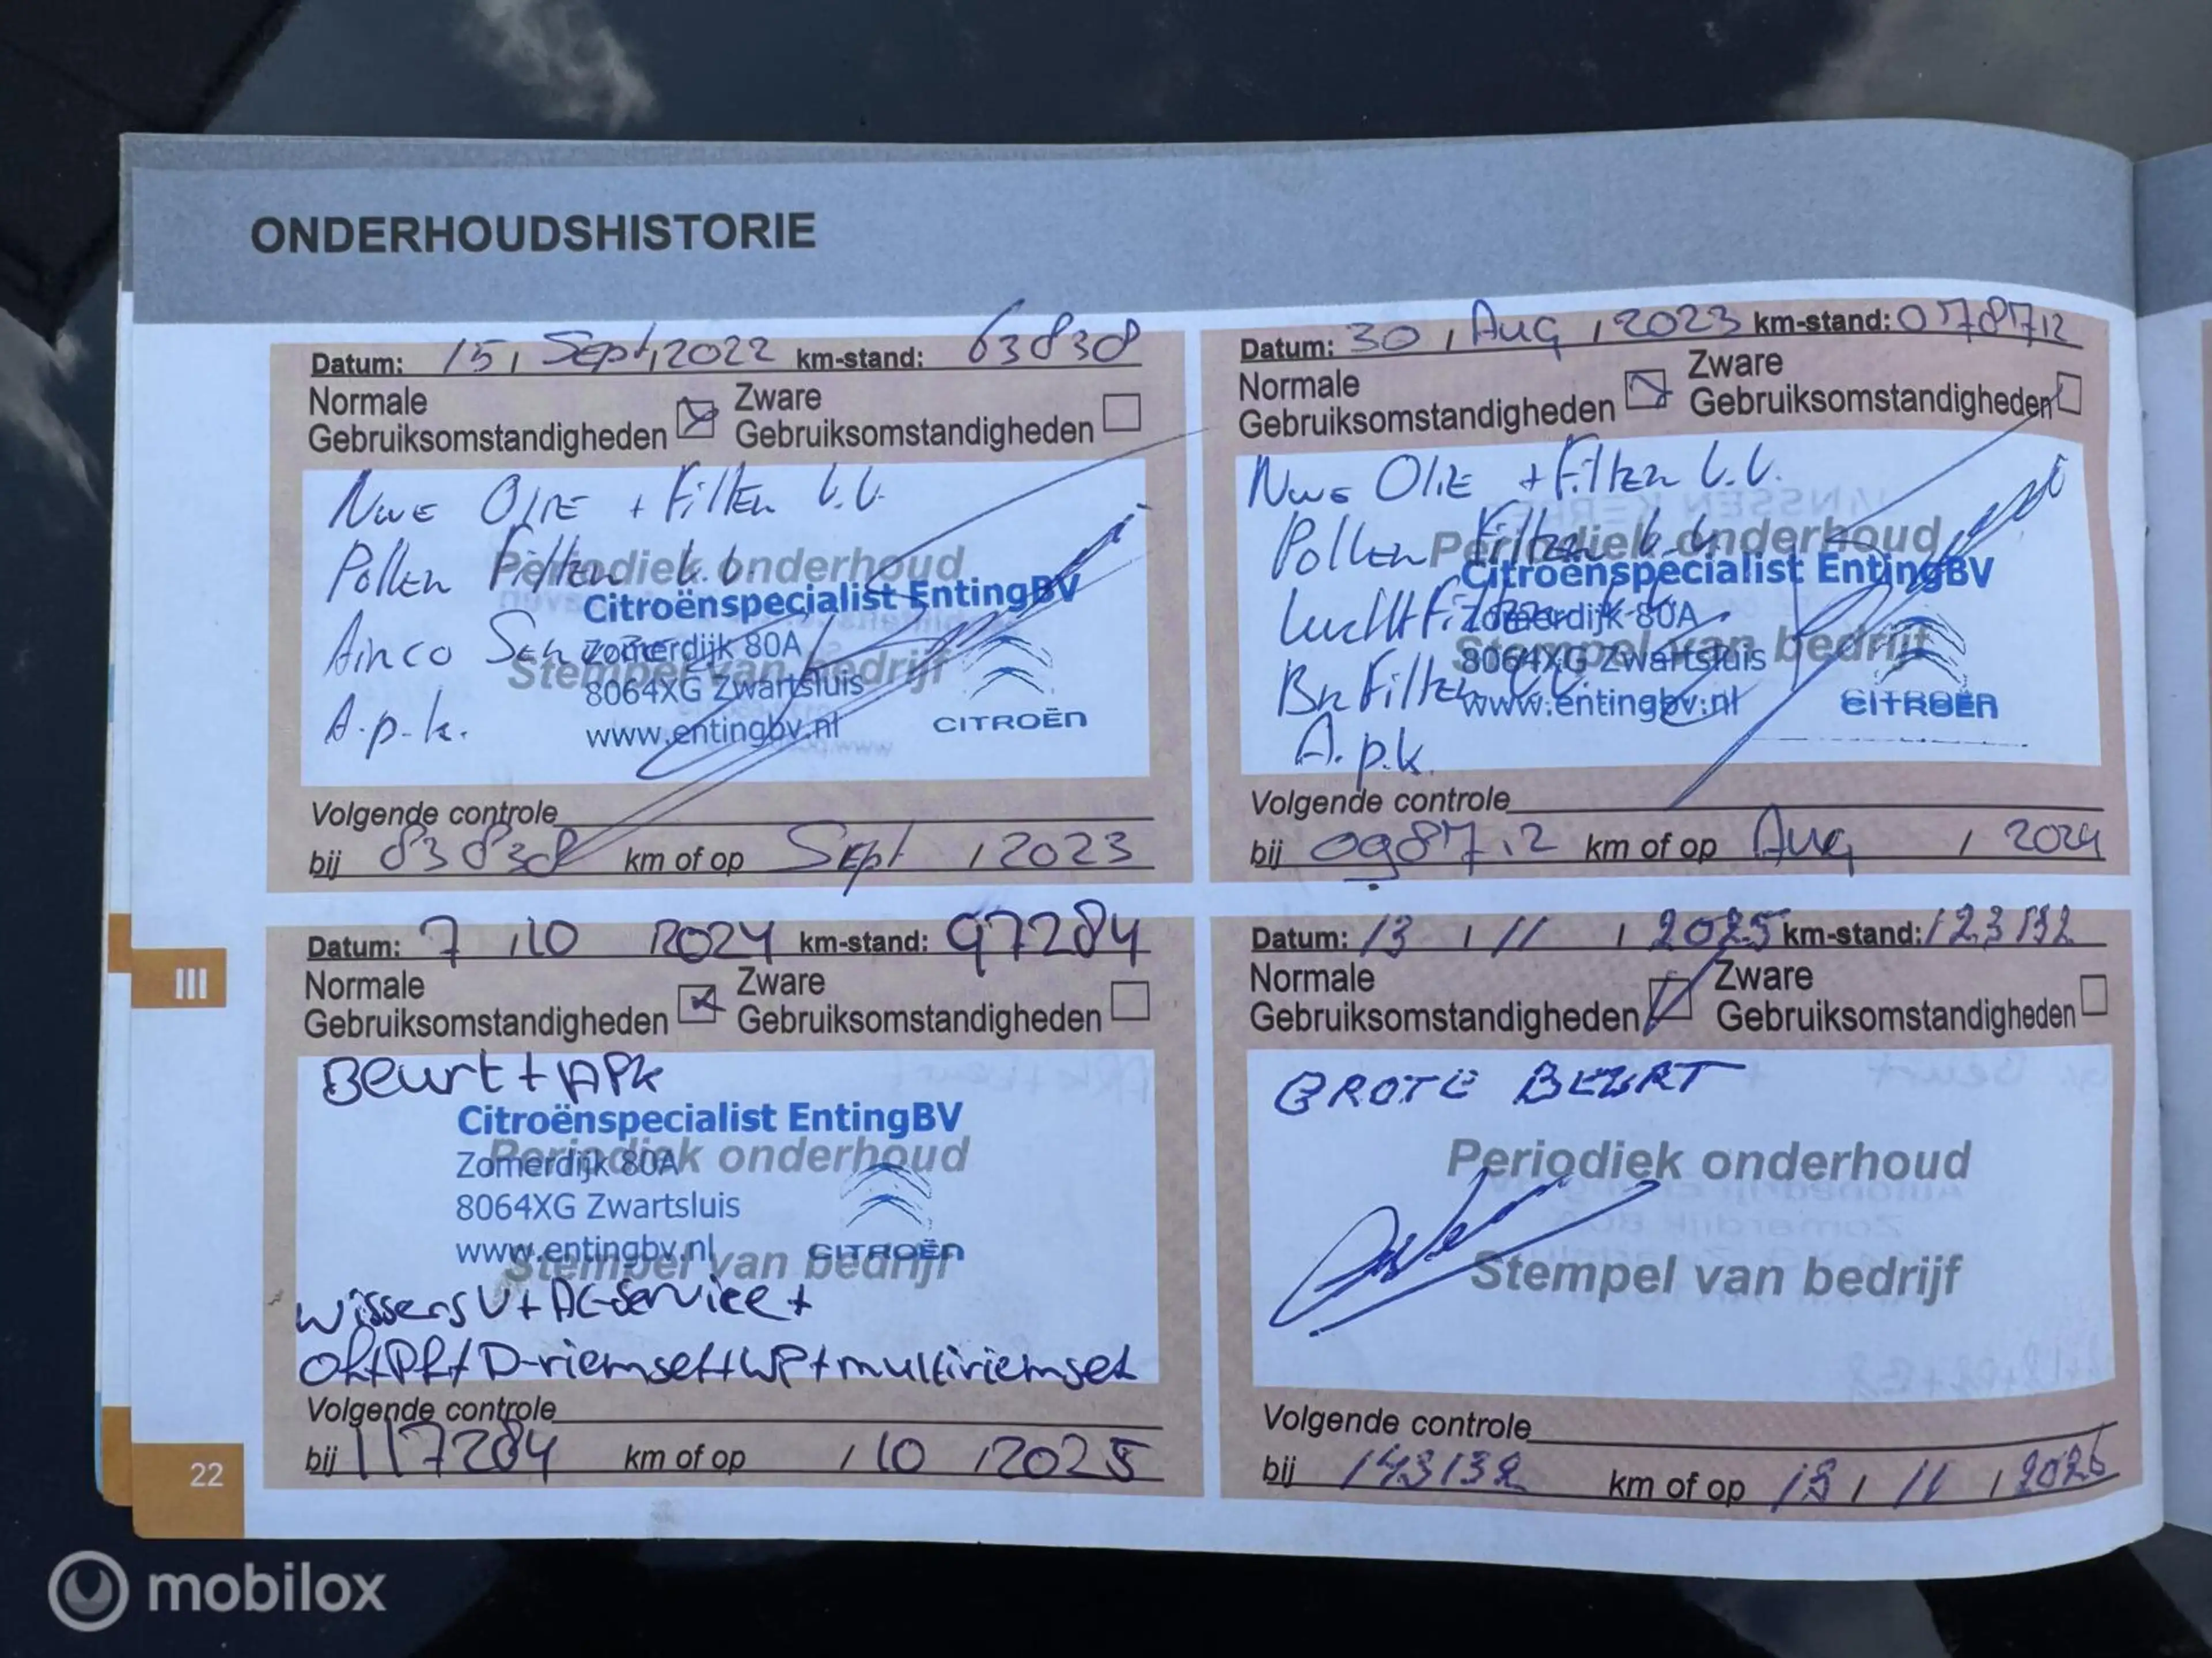 ONDERHOUDSHISTORIE
Datum: 15, Sept, 2022 km-stand: 63838
Normale Gebruiksomstandigheden
Zware Gebruiksomstandigheden
Nwe Olie + Filter V.V.
Pollen Filter V.V.
Airco
A.p.k.
Periodiek onderhoud
Stempel van bedrijf
Citroënspecialist EntingBV
Zomerdijk 80A
8064XG Zwartsluis
www.entingbv.nl
CITROËN
Volgende controle
bij 83838 km of op Sept , 2023
Datum: 30 , Aug , 2023 km-stand: 078712
Normale Gebruiksomstandigheden
Zware Gebruiksomstandigheden
Nwe Olie + Filter V.V.
Pollen Filter V.V.
Luchtfilter V.V.
Br Filter V.V.
A.p.k.
Periodiek onderhoud
Stempel van bedrijf
Citroënspecialist EntingBV
Zomerdijk 80A
8064XG Zwartsluis
www.entingbv.nl
CITROËN
Volgende controle
bij 098712 km of op Aug , 2024
Datum: 7 , 10 , 2024 km-stand: 97284
Normale Gebruiksomstandigheden
Zware Gebruiksomstandigheden
Beurt + APK
Citroënspecialist EntingBV
Zomerdijk 80A
8064XG Zwartsluis
www.entingbv.nl
CITROËN
Periodiek onderhoud
Stempel van bedrijf
wissers V + AC-Service +
of+Pf+D-riemset+WP+multiriemset
Volgende controle
bij 117284 km of op , 10 , 2025
Datum: 13 , 11 , 2025 km-stand: 123132
Normale Gebruiksomstandigheden
Zware Gebruiksomstandigheden
GROTE BEURT
Periodiek onderhoud
Stempel van bedrijf
Volgende controle
bij 143132 km of op 13 , 11 , 2026
III
22
mobilox